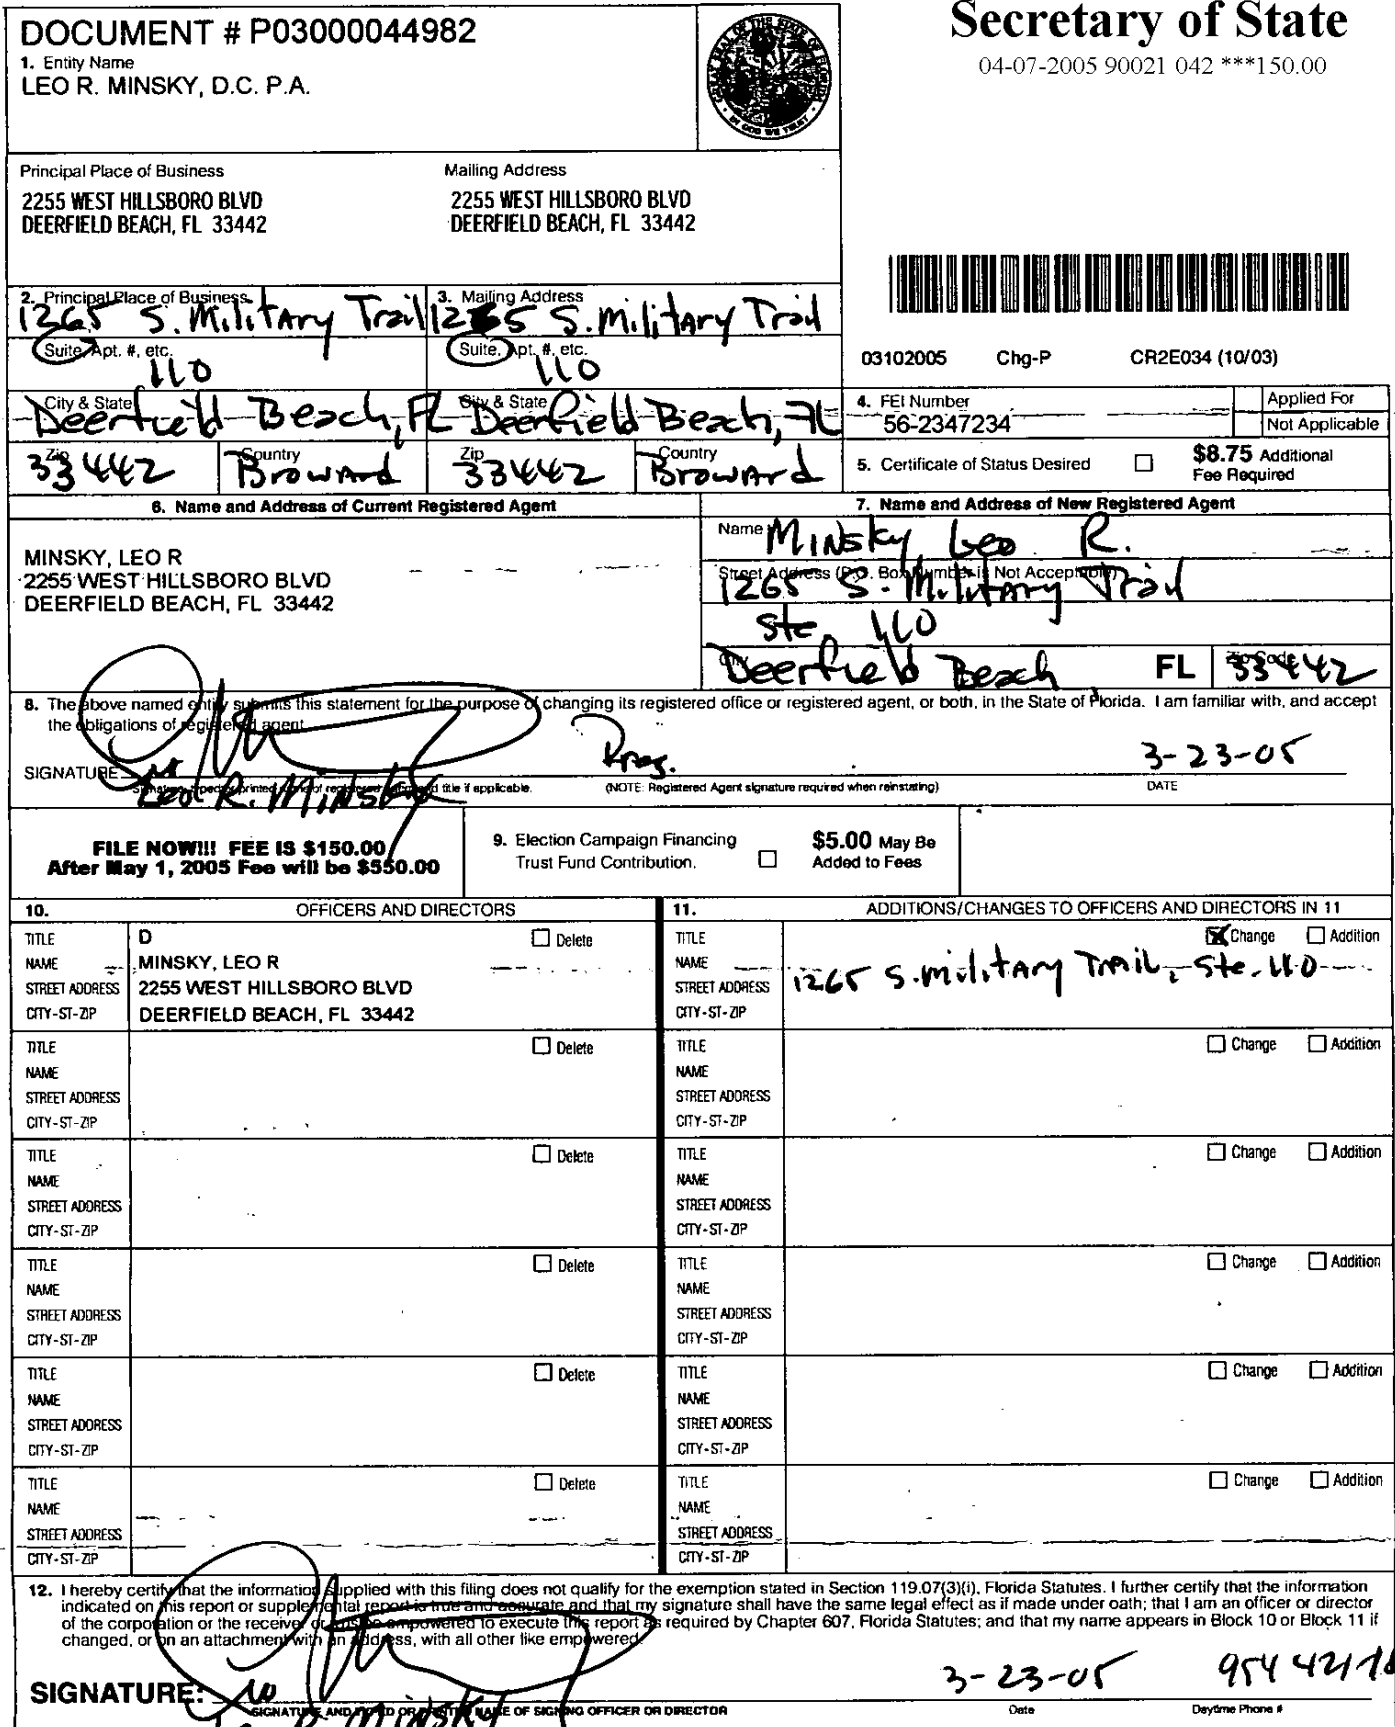 DOCUMENT # P03000044982
1. Entity Name
LEO R. MINSKY, D.C. P.A.
Secretary of State
04-07-2005 90021 042 ***150.00
Principal Place of Business
2255 WEST HILLSBORO BLVD
DEERFIELD BEACH, FL 33442
Mailing Address
2255 WEST HILLSBORO BLVD
DEERFIELD BEACH, FL 33442
2. Principal Place of Business
1265 S. Military Trail
Suite, Apt. #, etc.
110
City & State
Deerfield Beach, FL
Zip
33442
Country
Broward
3. Mailing Address
1265 S. Military Trail
Suite, Apt. #, etc.
110
City & State
Deerfield Beach, FL
Zip
33442
Country
Broward
03102005 Chg-P CR2E034 (10/03)
4. FEI Number
56-2347234
Applied For
Not Applicable
5. Certificate of Status Desired
$8.75 Additional
Fee Required
6. Name and Address of Current Registered Agent
MINSKY, LEO R
2255 WEST HILLSBORO BLVD
DEERFIELD BEACH, FL 33442
7. Name and Address of New Registered Agent
Name Minsky Leo R.
Street Address (P.O. Box Number is Not Acceptable)
1265 S. Military Trail
Ste 110
City
Deerfield Beach FL
Zip Code
33442
8. The above named entity submits this statement for the purpose of changing its registered office or registered agent, or both, in the State of Florida. I am familiar with, and accept
the obligations of registered agent.
SIGNATURE
Leo R. Minsky
Pres.
3-23-05
Signature, typed or printed name of registered agent and title if applicable.
(NOTE: Registered Agent signature required when reinstating)
DATE
FILE NOW!!! FEE IS $150.00
After May 1, 2005 Fee will be $550.00
9. Election Campaign Financing
Trust Fund Contribution.
$5.00 May Be
Added to Fees
10. OFFICERS AND DIRECTORS
11. ADDITIONS/CHANGES TO OFFICERS AND DIRECTORS IN 11
TITLE D Delete
NAME MINSKY, LEO R
STREET ADDRESS 2255 WEST HILLSBORO BLVD
CITY-ST-ZIP DEERFIELD BEACH, FL 33442
TITLE Change Addition
NAME
STREET ADDRESS 1265 S. Military Trail, Ste. 110
CITY-ST-ZIP
TITLE Delete
NAME
STREET ADDRESS
CITY-ST-ZIP
TITLE Change Addition
NAME
STREET ADDRESS
CITY-ST-ZIP
TITLE Delete
NAME
STREET ADDRESS
CITY-ST-ZIP
TITLE Change Addition
NAME
STREET ADDRESS
CITY-ST-ZIP
TITLE Delete
NAME
STREET ADDRESS
CITY-ST-ZIP
TITLE Change Addition
NAME
STREET ADDRESS
CITY-ST-ZIP
TITLE Delete
NAME
STREET ADDRESS
CITY-ST-ZIP
TITLE Change Addition
NAME
STREET ADDRESS
CITY-ST-ZIP
TITLE Delete
NAME
STREET ADDRESS
CITY-ST-ZIP
TITLE Change Addition
NAME
STREET ADDRESS
CITY-ST-ZIP
12. I hereby certify that the information supplied with this filing does not qualify for the exemption stated in Section 119.07(3)(i), Florida Statutes. I further certify that the information
indicated on this report or supplemental report is true and accurate and that my signature shall have the same legal effect as if made under oath; that I am an officer or director
of the corporation or the receiver or empowered to execute this report as required by Chapter 607, Florida Statutes; and that my name appears in Block 10 or Block 11 if
changed, or on an attachment with an address, with all other like empowered.
SIGNATURE:
3-23-05
954 421
R. Minsky
SIGNATURE AND TYPED OR PRINTED NAME OF SIGNING OFFICER OR DIRECTOR
Date
Daytime Phone #